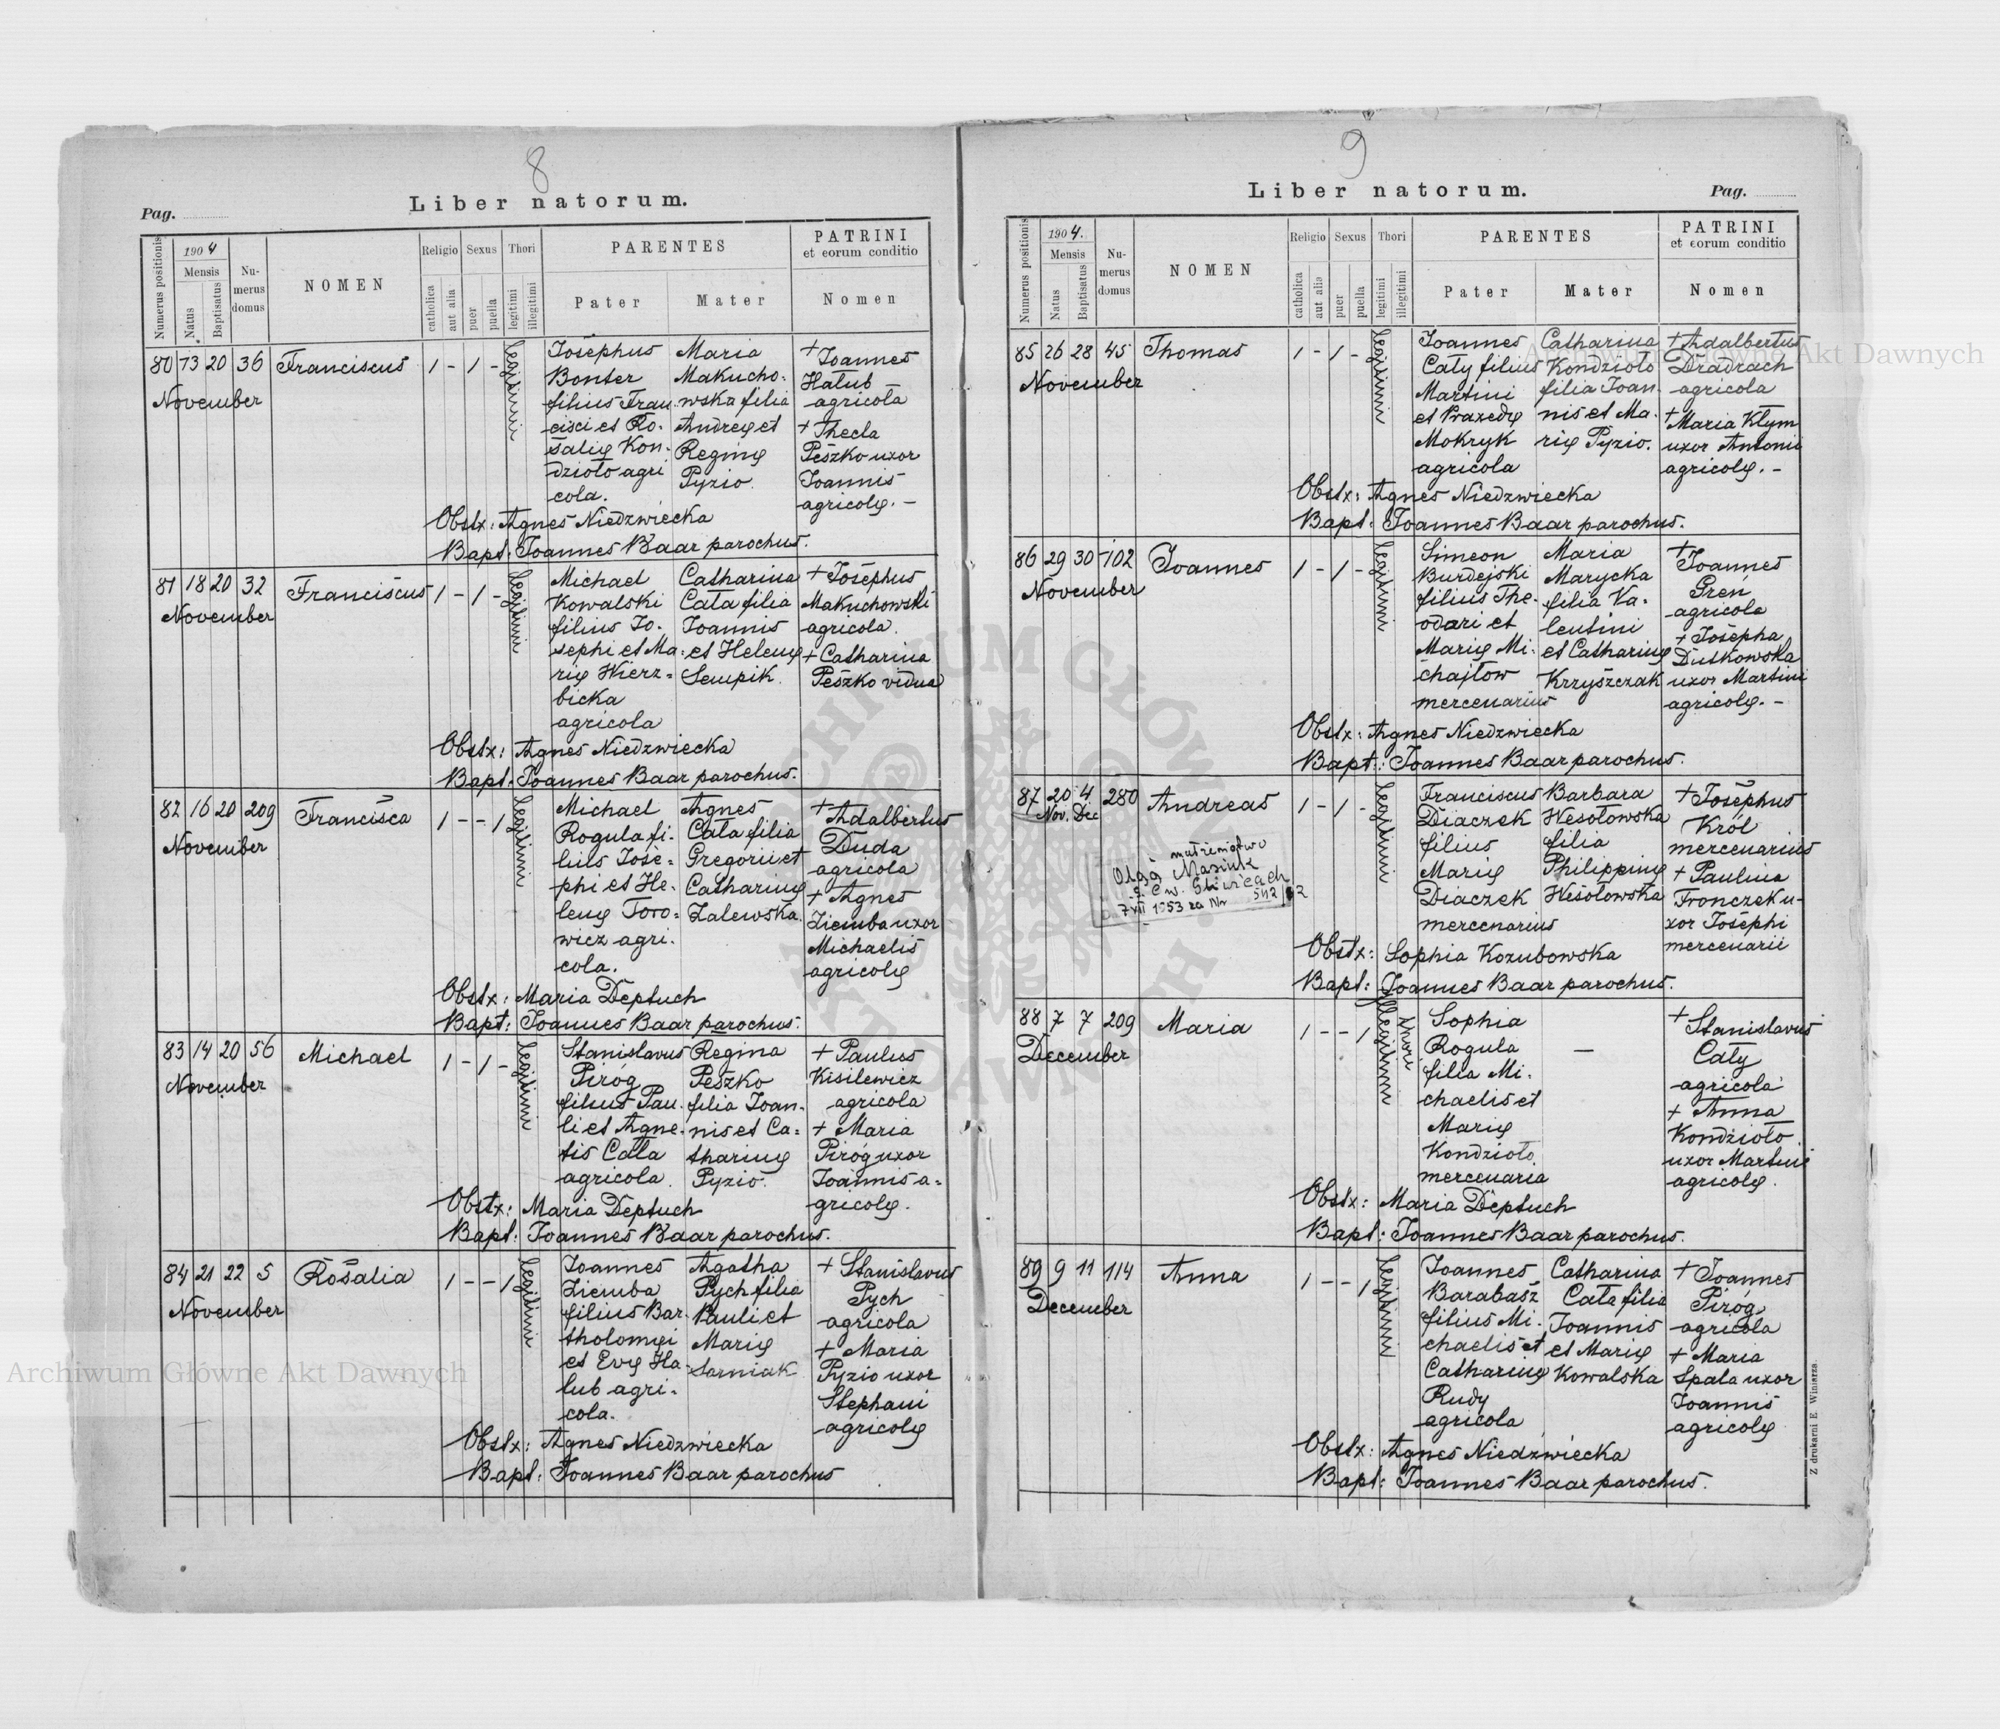 8
Liber natorum.
Pag.
Numerus positionis
1904
Mensis
Natus
Baptisatus
Nu-
merus
domus
NOMEN
Religio
catholica
aut alia
Sexus
puer
puella
Thori
legitimi
illegitimi
PARENTES
Pater
Mater
PATRINI
et eorum conditio
Nomen
80 13 20 36 Franciscus 1 - 1 - legitimi
November
Josephus
Bonter
filius Fran
cisci et Ro-
salię Kon-
dzioło agri
cola.
Maria
Makucho-
wska filia
Andreę et
Reginę
Pyzio.
+ Joannes
Hałub
agricola
+ Thecla
Peszko uxor
Joannis
agricolę. -
Obstx: Agnes Niedzwiecka
Bapt: Joannes Baar parochus.
81 18 20 32 Franciscus 1 - 1 - legitimi
November
Michael
Kowalski
filius Jo-
sephi et Ma-
rię Wierz-
bicka
agricola
Catharina
Cała filia
Joannis
et Helenę
Sempik.
+ Josephus
Makuchowski
agricola.
+ Catharina
Peszko vidua
Obstx: Agnes Niedzwiecka
Bapt: Joannes Baar parochus.
82 16 20 209 Francisca 1 - - 1 legitimi
November
Michael
Rogula fi-
lius Jose-
phi et He-
lenę Toro-
wicz agri-
cola.
Agnes
Cała filia
Gregorii et
Catharinę
Zalewska.
+ Adalbertus
Duda
agricola
+ Agnes
Ziemba uxor
Michaelis
agricolę
Obstx: Maria Deptuch
Bapt: Joannes Baar parochus.
83 14 20 56 Michael 1 - 1 - legitimi
November
Stanislavus
Piróg
filius Pau-
li et Agne-
tis Cała
agricola.
Regina
Peszko
filia Joan-
nis et Ca-
tharinę
Pyzio.
+ Paulus
Kisilewicz
agricola
+ Maria
Piróg uxor
Joannis a-
gricolę.
Obstx: Maria Deptuch
Bapt: Joannes Baar parochus.
84 21 22 5 Rosalia 1 - - 1 legitimi
November
Joannes
Ziemba
filius Bar-
tholomęi
et Evę Ha-
lub agri-
cola.
Agatha
Pych filia
Pauli et
Marię
Sarniak
+ Stanislavus
Pych
agricola
+ Maria
Pyzio uxor
Stephani
agricolę
Obstx: Agnes Niedzwiecka
Bapt: Joannes Baar parochus
9
Liber natorum.
Pag.
Numerus positionis
1904.
Mensis
Natus
Baptisatus
Nu-
merus
domus
NOMEN
Religio
catholica
aut alia
Sexus
puer
puella
Thori
legitimi
illegitimi
PARENTES
Pater
Mater
PATRINI
et eorum conditio
Nomen
85 26 28 45 Thomas 1 - 1 - legitimi
November
Joannes
Cały filius
Martini
et Praxedę
Mokryk
agricola
Catharina
Kondzioło
filia Joan-
nis et Ma-
rię Pyzio.
+ Adalbertus
Dradrach
agricola
+ Maria Kłym
uxor Antonii
agricolę. -
Obstx: Agnes Niedzwiecka
Bapt: Joannes Baar parochus.
86 29 30 102 Joannes 1 - 1 - legitimi
November
Simeon
Burdejski
filius The-
odori et
Marię Mi-
chajłow
mercenarius
Maria
Marycka
filia Va-
lentini
et Catharinę
Krzyszczak
+ Joannes
Greń
agricola
+ Josepha
Dutkowska
uxor Martini
agricolę. -
Obstx: Agnes Niedzwiecka
Bapt: Joannes Baar parochus.
87 20 4 280 Andreas 1 - 1 - legitimi
Nov. Dec
małżeństwo
Olgą Masiuk
w Gliwicach
7 VII 1953 za Nr 542
Franciscus
Diaczek
filius
Marię
Diaczek
mercenarius
Barbara
Wesołowska
filia
Philippinę
Wesołowska
+ Josephus
Król
mercenarius
+ Paulina
Fronczek u-
xor Josephi
mercenarii
Obstx: Sophia Kozubowska
Bapt: Joannes Baar parochus.
88 7 7 209 Maria 1 - - 1 Illegitimi thori
December
Sophia
Rogula
filia Mi-
chaelis et
Marię
Kondzioło
mercenaria
—
+ Stanislavus
Cały
agricola
+ Anna
Kondzioło
uxor Martini
agricolę.
Obstx: Maria Deptuch
Bapt: Joannes Baar parochus.
89 9 11 114 Anna 1 - - 1 legitimi
December
Joannes
Barabasz
filius Mi-
chaelis et
Catharinę
Rudy
agricola
Catharina
Cała filia
Joannis
et Marię
Kowalska
+ Joannes
Piróg
agricola
+ Maria
Spała uxor
Joannis
agricolę
Obstx: Agnes Niedzwiecka
Bapt: Joannes Baar parochus.
Z drukarni E. Winiarza.
Archiwum Główne Akt Dawnych
Archiwum Główne Akt Dawnych
ARCHIWUM GŁÓWNE AKT DAWNYCH